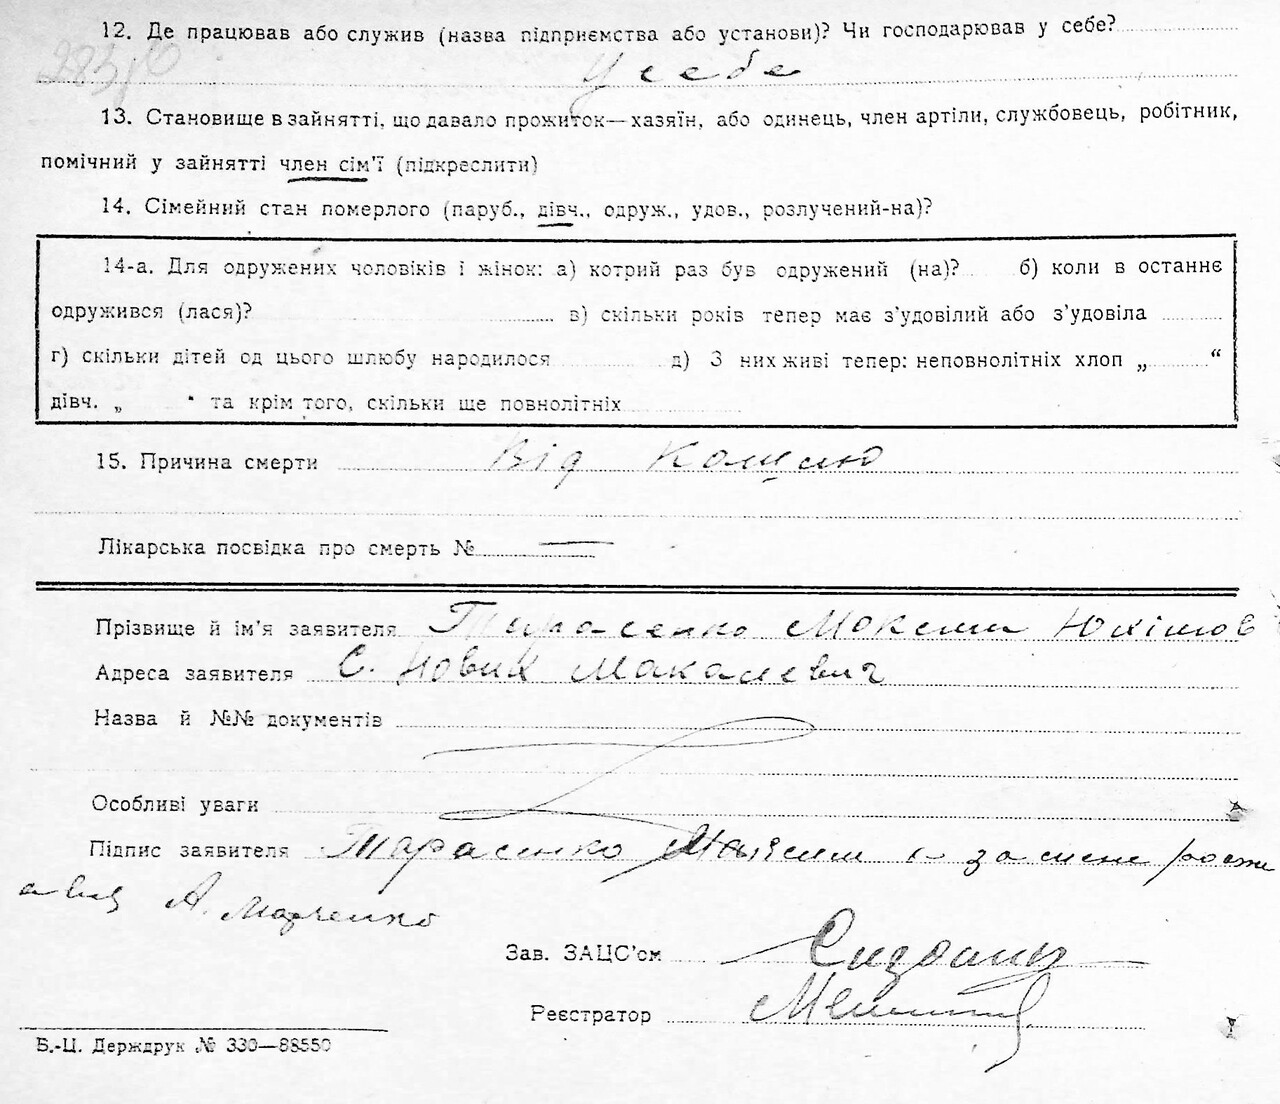 12. Де працював або служив (назва підприємства або установи)? Чи господарював у себе?
У себе
13. Становище в зайнятті, що давало прожиток—хазяїн, або одинець, член артіли, службовець, робітник,
помічний у зайнятті член сім'ї (підкреслити)
14. Сімейний стан померлого (паруб., дівч., одруж., удов., розлучений-на)?
14-а. Для одружених чоловіків і жінок: а) котрий раз був одружений (на)? б) коли в останнє
одружився (лася)? в) скільки років тепер має з'удовілий або з'удовіла
г) скільки дітей од цього шлюбу народилося д) З них живі тепер: неповнолітніх хлоп „ “
дівч. „ “ та крім того, скільки ще повнолітніх
15. Причина смерти Від
Лікарська посвідка про смерть № —
Прізвище й ім'я заявителя Тарасенко Максим Юхімов
Адреса заявителя С. Нових Макалевич
Назва й №№ документів
Особливі уваги
Підпис заявителя Тарасенко Максим а за мене
А. Марченко
Зав. ЗАЦС'ом
Реєстратор
Б.-Ц. Держдрук № 330—88550